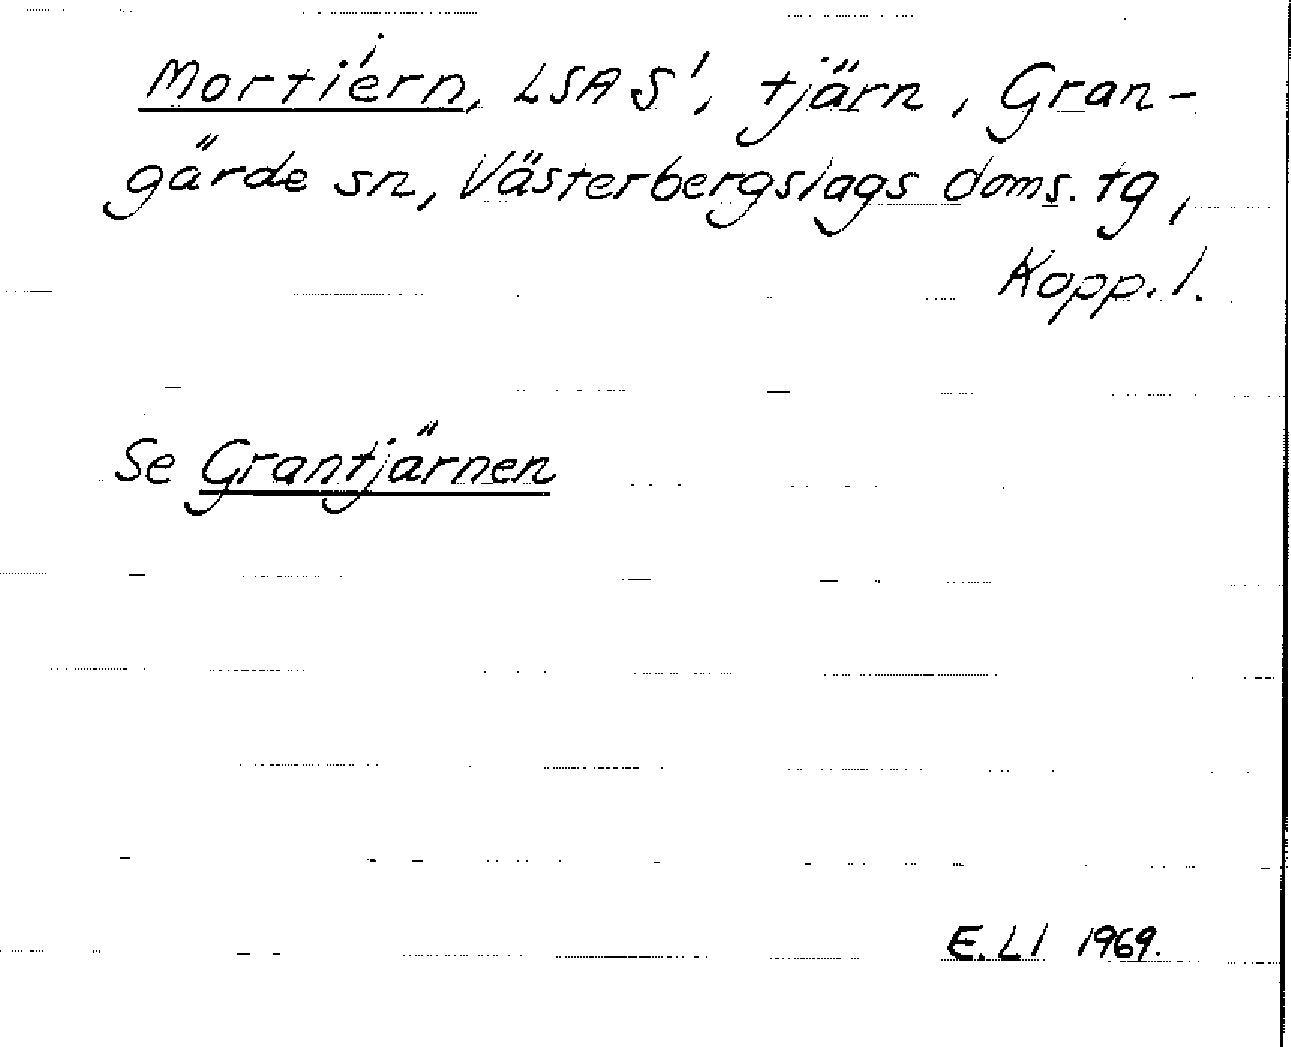 Mortiérn, LSA S', tjärn, Gran-
gärde sn, Västerbergslags doms. tg,
Kopp. l.
Se Grantjärnen
E. Ll 1969.